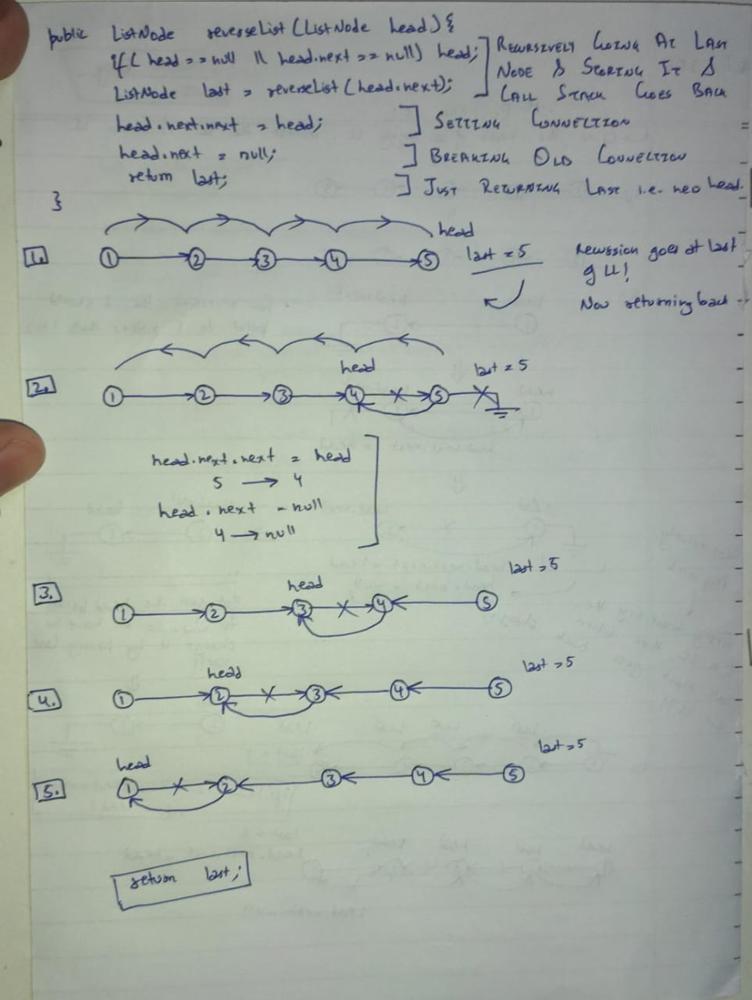 public ListNode reverseList(ListNode head){
if(head == null || head.next == null) head;
ListNode last = reverseList(head.next);
RECURSIVELY GOING AT LAST
NODE & STORING IT &
CALL STACK GOES BACK
head.next.next = head; ] SETTING CONNECTION
head.next = null; ] BREAKING OLD CONNECTION
return last; ] JUST RETURNING LAST i.e. new head.
}
head
1. 1 2 3 4 5 last = 5
Recussion goes at last
g LL!
Now returning back
head last = 5
2. 1 2 3 4 5
head.next.next = head
5 → 4
head.next = null
4 → null
head last = 5
3. 1 2 3 4 5
head last = 5
4. 1 2 3 4 5
head last = 5
5. 1 2 3 4 5
return last;